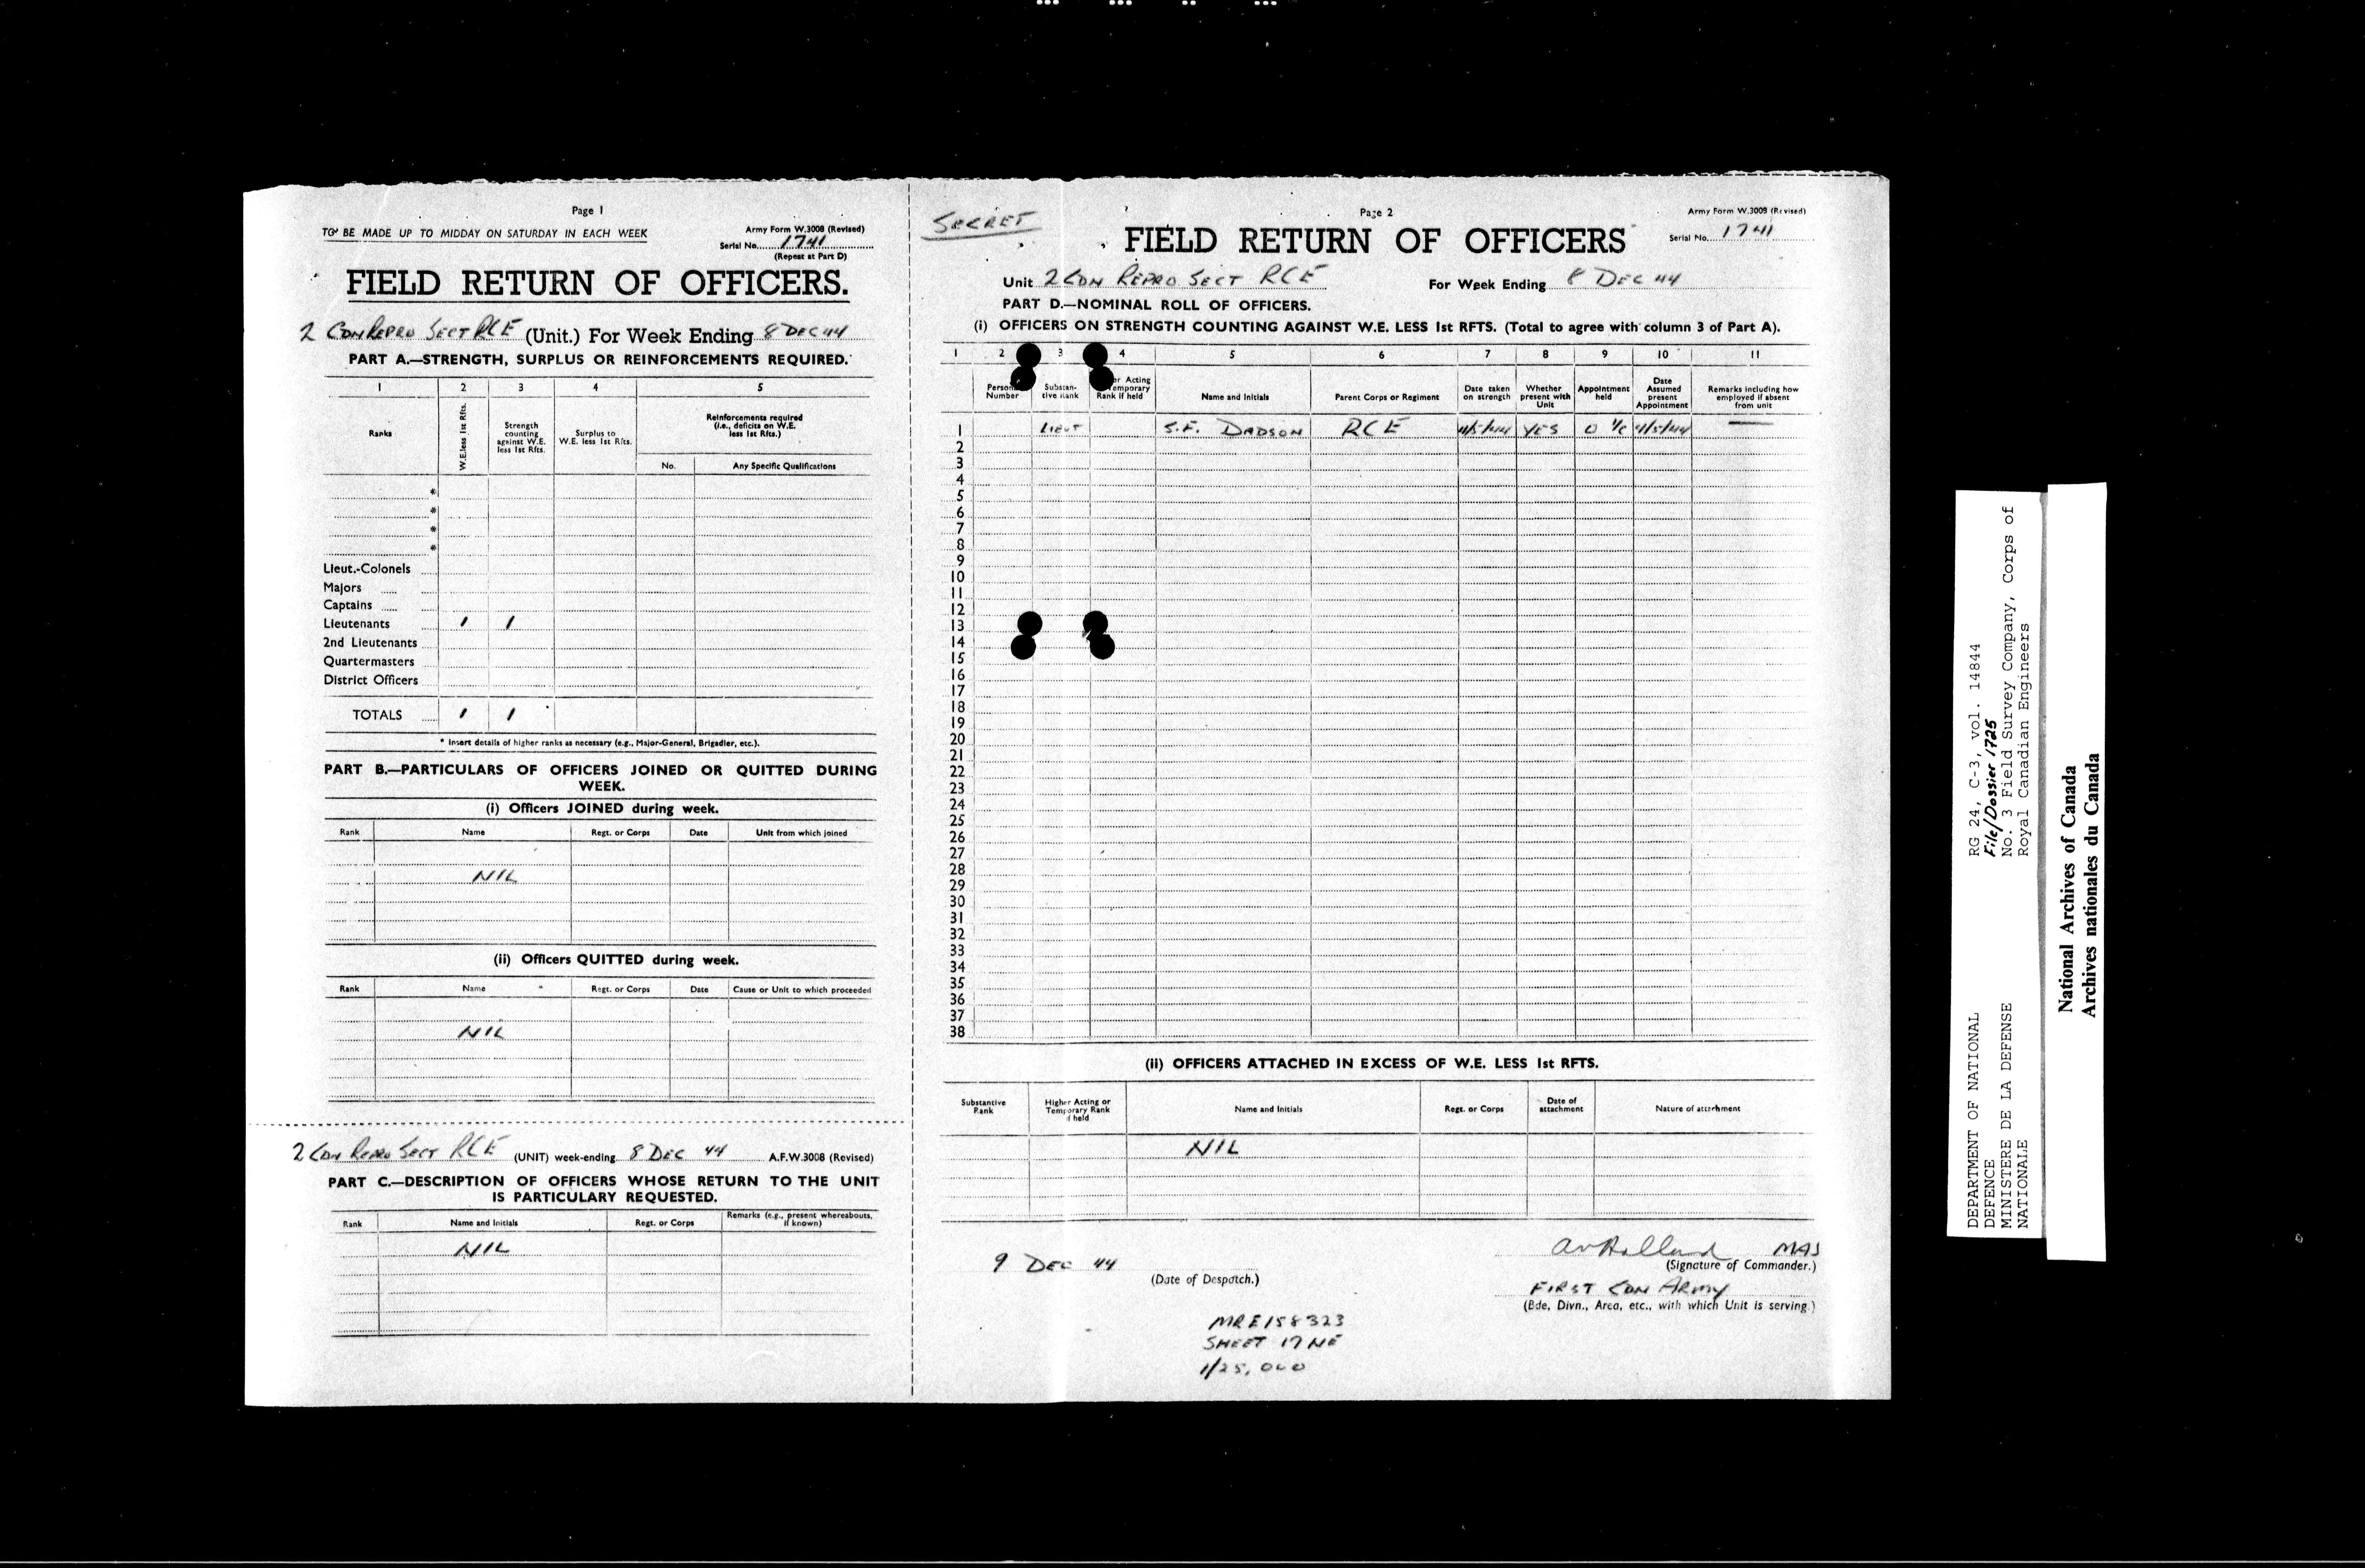 Page 1
TO BE MADE UP TO MIDDAY ON SATURDAY IN EACH WEEK
Army Form W.3008 (Revised)
Serial No. 1741
(Repeat at Part D)
FIELD RETURN OF OFFICERS.
2 CDN REPRO SECT RCE (Unit.) For Week Ending 8 DEC 44
PART A.—STRENGTH, SURPLUS OR REINFORCEMENTS REQUIRED.
1 2 3 4 5
Ranks
W.E. less 1st Rfts.
Strength counting against W.E. less 1st Rfts.
Surplus to W.E. less 1st Rfts.
Reinforcements required (i.e., deficits on W.E. less 1st Rfts.)
No. Any Specific Qualifications
*
*
*
*
Lieut.-Colonels
Majors
Captains
Lieutenants 1 1
2nd Lieutenants
Quartermasters
District Officers
TOTALS 1 1
* Insert details of higher ranks as necessary (e.g., Major-General, Brigadier, etc.).
PART B.—PARTICULARS OF OFFICERS JOINED OR QUITTED DURING
WEEK.
(i) Officers JOINED during week.
Rank Name Regt. or Corps Date Unit from which joined
NIL
(ii) Officers QUITTED during week.
Rank Name Regt. or Corps Date Cause or Unit to which proceeded
NIL
2 CDN REPRO SECT RCE (UNIT) week-ending 8 DEC 44 A.F.W.3008 (Revised)
PART C.—DESCRIPTION OF OFFICERS WHOSE RETURN TO THE UNIT
IS PARTICULARY REQUESTED.
Rank Name and Initials Regt. or Corps Remarks (e.g., present whereabouts, if known)
NIL
SECRET
Page 2
Army Form W.3009 (Revised)
FIELD RETURN OF OFFICERS
Serial No. 1741
Unit 2 CDN REPRO SECT RCE For Week Ending 8 DEC 44
PART D.—NOMINAL ROLL OF OFFICERS.
(i) OFFICERS ON STRENGTH COUNTING AGAINST W.E. LESS 1st RFTS. (Total to agree with column 3 of Part A).
1 2 3 4 5 6 7 8 9 10 11
Number
Substan-tive Rank
er Acting emporary Rank if held
Name and Initials
Parent Corps or Regiment
Date taken on strength
Whether present with Unit
Appointment held
Date Assumed present Appointment
Remarks including how employed if absent from unit
1 LIEUT S.F. DADSON RCE YES O I/C
2
3
4
5
6
7
8
9
10
11
12
13
14
15
16
17
18
19
20
21
22
23
24
25
26
27
28
29
30
31
32
33
34
35
36
37
38
(ii) OFFICERS ATTACHED IN EXCESS OF W.E. LESS 1st RFTS.
Substantive Rank
Higher Acting or Temporary Rank if held
Name and Initials
Regt. or Corps
Date of attachment
Nature of attachment
NIL
9 DEC 44
(Date of Despatch.)
MAJ
(Signature of Commander.)
FIRST CDN ARMY
(Bde, Divn., Area, etc., with which Unit is serving.)
MR E158323
SHEET 17 NE
1/25,000
DEPARTMENT OF NATIONAL
DEFENCE
MINISTERE DE LA DEFENSE
NATIONALE
RG 24, C-3, vol. 14844
File/Dossier 1725
No. 3 Field Survey Company, Corps of
Royal Canadian Engineers
National Archives of Canada
Archives nationales du Canada